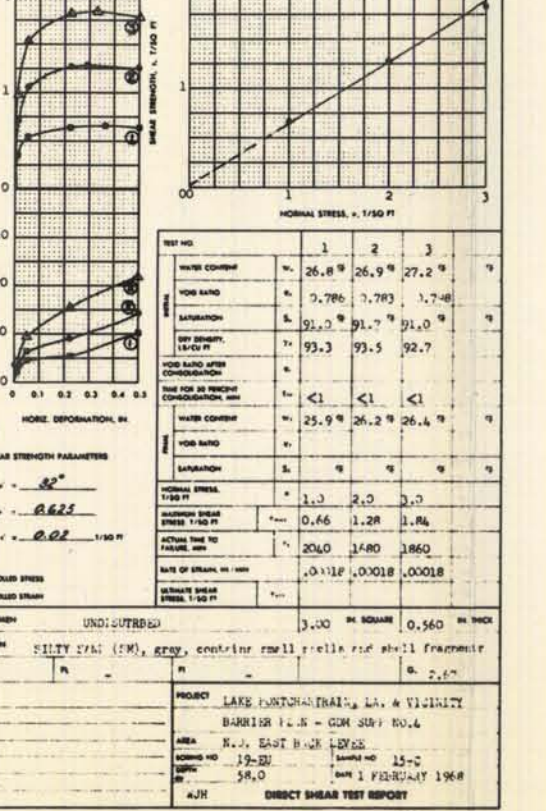 SHEAR STRENGTH, s, T/SQ FT
1
0
0 0.1 0.2 0.3 0.4 0.5
HORIZ. DEFORMATION, IN.
1
0 0 1 2 3
NORMAL STRESS, σ, T/SQ FT
TEST NO. 1 2 3
INITIAL
WATER CONTENT 26.8 % 26.9 % 27.2 % %
VOID RATIO 0.786 0.783
SATURATION 91.0 % 91.0 % %
DRY DENSITY, LB/CU FT 93.3 93.5 92.7
VOID RATIO AFTER CONSOLIDATION
TIME FOR 50 PERCENT CONSOLIDATION, MIN <1 <1 <1
FINAL
WATER CONTENT 25.9 % 26.2 % 26.4 % %
VOID RATIO
SATURATION % % % %
NORMAL STRESS, T/SQ FT 1.0 2.0 3.0
MAXIMUM SHEAR STRESS, T/SQ FT 0.66 1.28 1.84
ACTUAL TIME TO FAILURE, MIN 2040 1680 1860
RATE OF STRAIN, IN./MIN .00018 .00018 .00018
ULTIMATE SHEAR STRESS, T/SQ FT
AR STRENGTH PARAMETERS
= 32°
= 0.625
= 0.02 T/SQ FT
OLLED STRESS
OLLED STRAIN
MEN UNDISUTRBED 3.00 IN. SQUARE 0.560 IN. THICK
SILTY (SM), gray, contains small and shell fragments
PL - PI - G.
PROJECT LAKE PONTCHARTRAIN, LA. & VICINITY
BARRIER PLAN - GDM SUPP NO.4
AREA N.O. EAST BACK LEVEE
BORING NO 19-EU SAMPLE NO 15-C
DEPTH 58.0 DATE 1 FEBRUARY 1968
AJH DIRECT SHEAR TEST REPORT